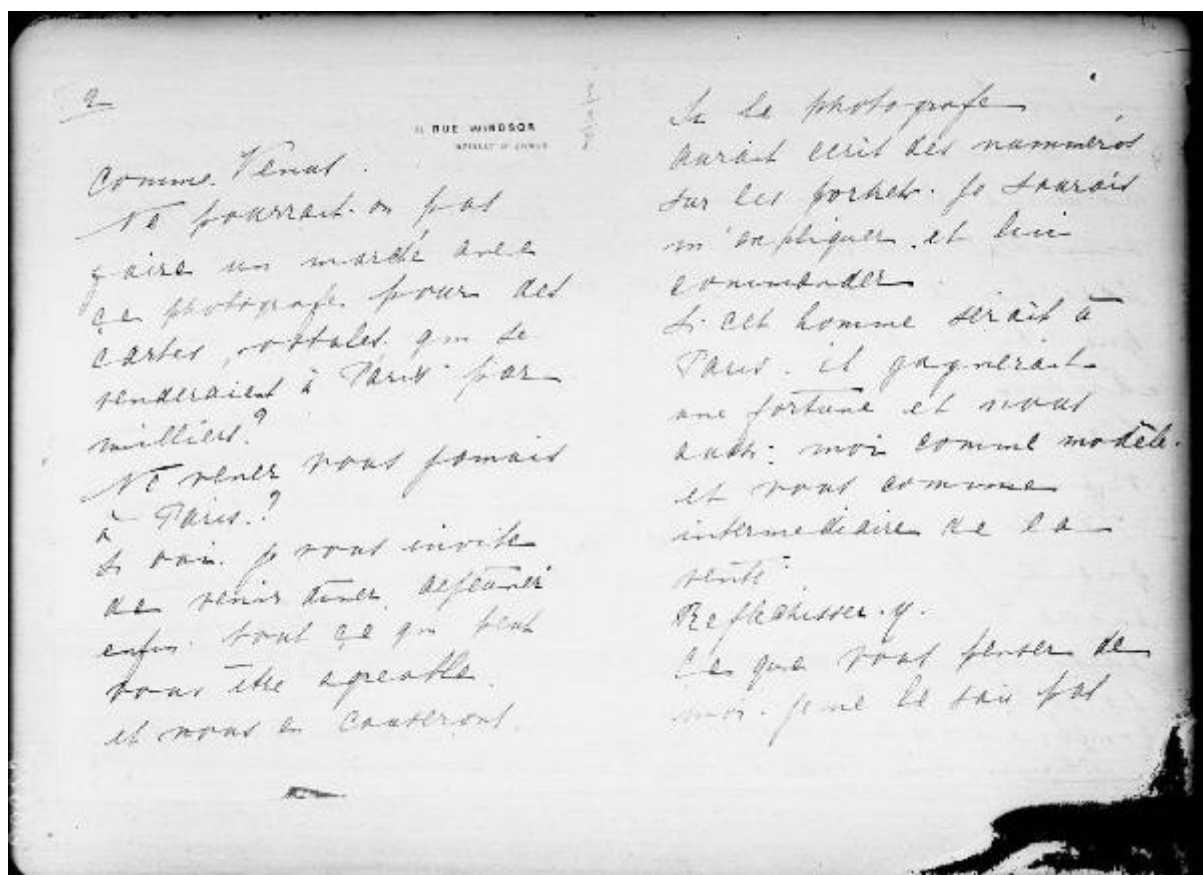 2
11 RUE WINDSOR
comme Venus.
Ne pourrait-on pas
faire un marché avec
ce photografe pour des
cartes postales qui se
venderaient à Paris par
milliers?
Ne venez vous jamais
à Paris?
Si oui. je vous invite
de venir diner, dejeuner
enfin tout ce qui peut
vous être agreable
et nous en causeront.
Si le photografe
aurait ecrit des nummeros
sur les pochet. je saurais
m'expliquer et lui
commander
Si cet homme serait à
Paris. il gagnerait
une fortune et nous
aussi: moi comme modèle.
et vous comme
intermediaire de la
vente.
Reflechisser-y.
Ce que vous penser de
moi. je ne le sais pas